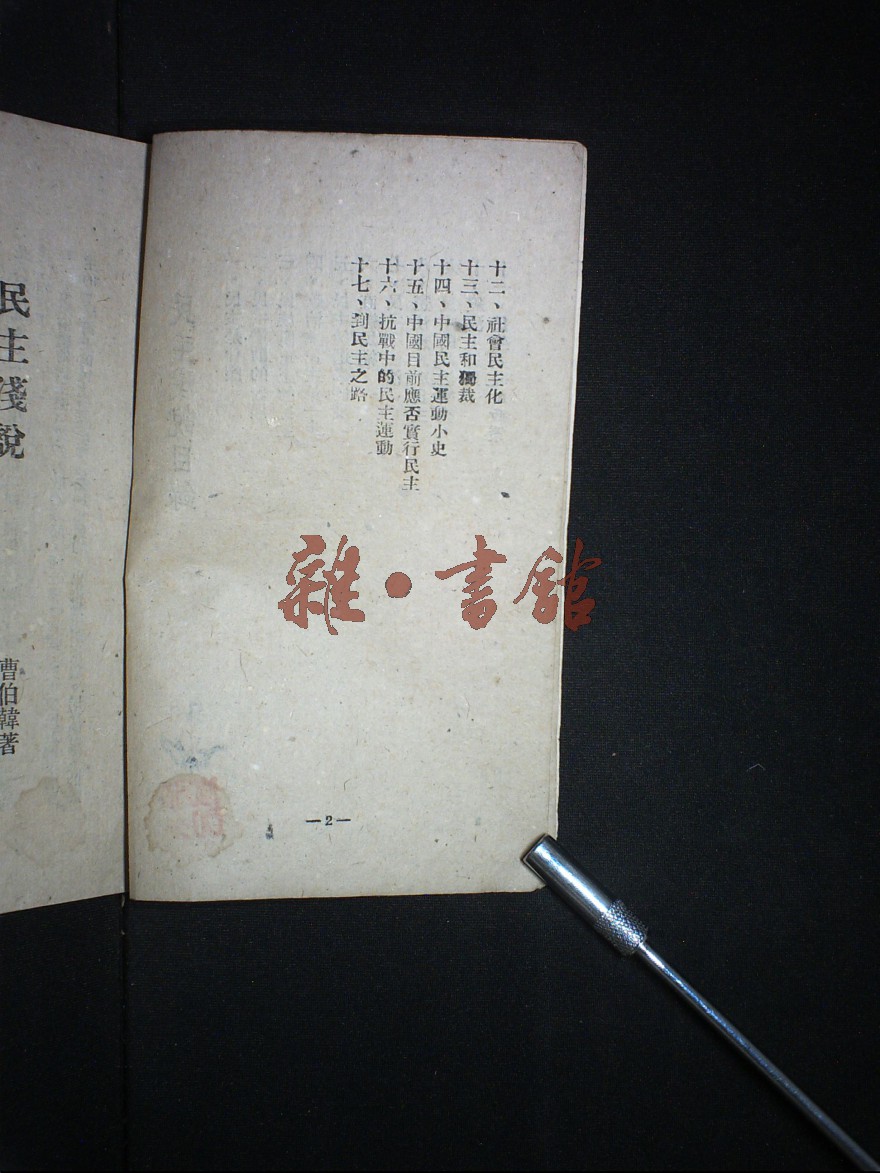 十二、社會民主化
十三、民主和獨裁
十四、中國民主運動小史
十五、中國目前應否實行民主
十六、抗戰中的民主運動
十七、到民主之路
—2—
民主淺說
曹伯韓著
雜·書館